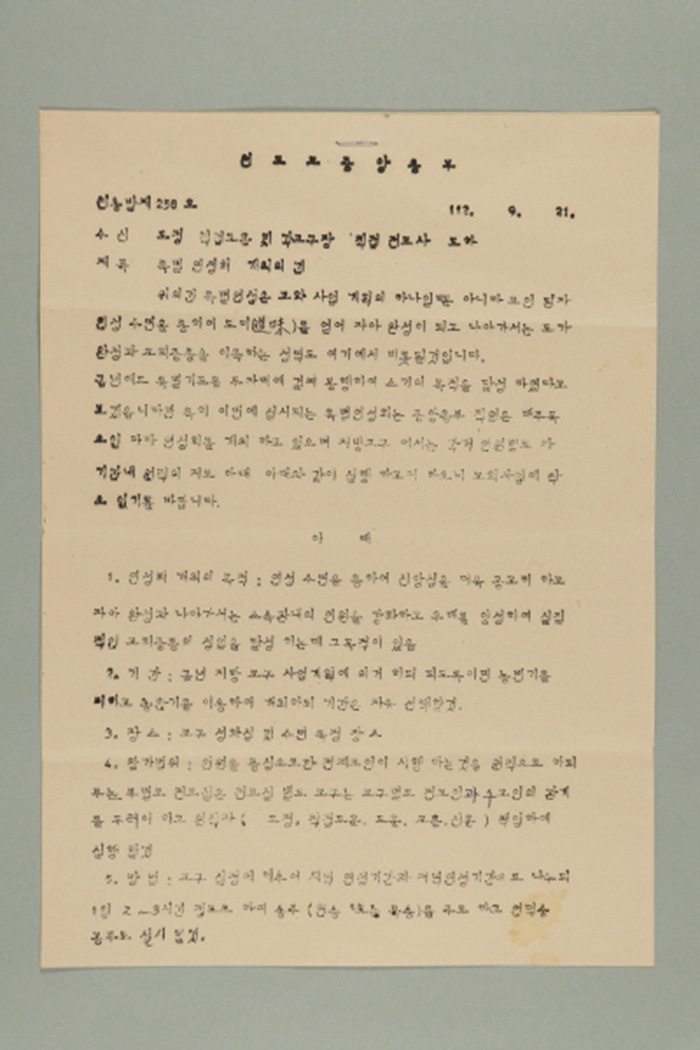 천도교중앙총부
천총발제 258 호
112. 9. 21.
수 신 도정 직접도훈 및 각교구장 직접 전교사 도하
제 목 특별 연성회 개최의 건
위의건 특별연성은 교화 사업 계획의 하나일뿐 아니라 교인 각자
연성 수련을 통하여 도미(道味)를 얻어 자아 완성이 되고 나아가서는 도가
완성과 교회중흥을 이룩하는 성력도 여기에서 비롯될것입니다.
금년에도 특별기도를 두차례에 걸쳐 봉행하여 소기의 목적을 달성 하였다고
보겠읍니다만 특히 이번에 실시되는 특별연성회는 중앙총부 직원은 매주목
요일 마다 연성회를 개최 하고 있으며 지방교구 에서는 연원별로
기간내 원칙의 아래와 같이 실행 하고저 하오니 교회사업에 착
오 없기를 바랍니다.
아 래
1. 연성회 개최의 목적 : 연성 수련을 통하여 신앙심을 더욱 공고히 하고
자아 완성과 나아가서는 소속관내의 연원을 강화하고 후대를 양성하여 실질
적인 교회중흥의 성업을 달성 하는데 그목적이 있음
2. 기 간 : 금년 지방 교구 사업계획에 의거 하되 되도록이면 농번기를
피하고 농한기를 이용하여 개최하되 기간은 자유 선택할것.
3. 장 소 : 교구 성화실 및 수련 특정 장소
4. 참가범위 : 연원을 중심으로한 전체교인이 시행 하는것을 원칙으로 하되
부는 부별로 전교실은 전교실 별로 교구는 교구별로 전교인과 수교인의 관계
를 두려이 하고 원직자 ( 도정, 직접도훈, 도훈, 교훈, 신훈 ) 책임하에
실행 할것
5. 방 법 : 교구 실정에 비추어 지역 연성기간과 연성기간으로 나누되
1일 2~3시간 정도로 하며 송주 (현송 묵송)를 주로 하고 천덕송
공부도 실시 할것.